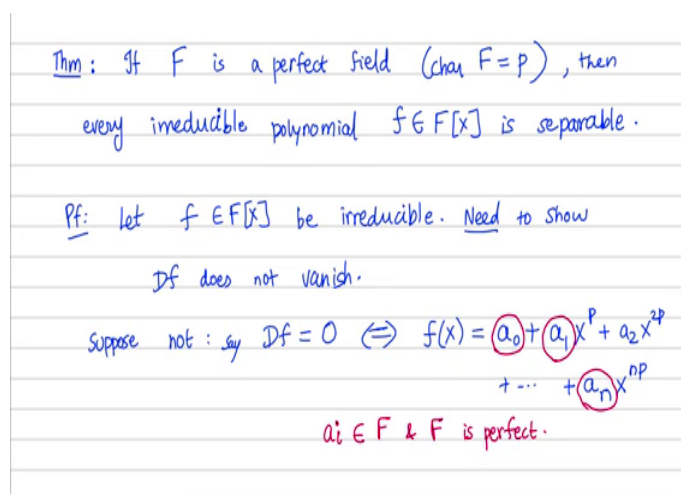 Thm : If F is a perfect field (char F = p), then
every irreducible polynomial f ∈ F[x] is separable.
Pf: Let f ∈ F[x] be irreducible. Need to show
Df does not vanish.
Suppose not : say Df = 0 ⇔ f(x) = a₀ + a₁x^p + a₂x^2p
+ ... + aₙx^np
ai ∈ F & F is perfect.